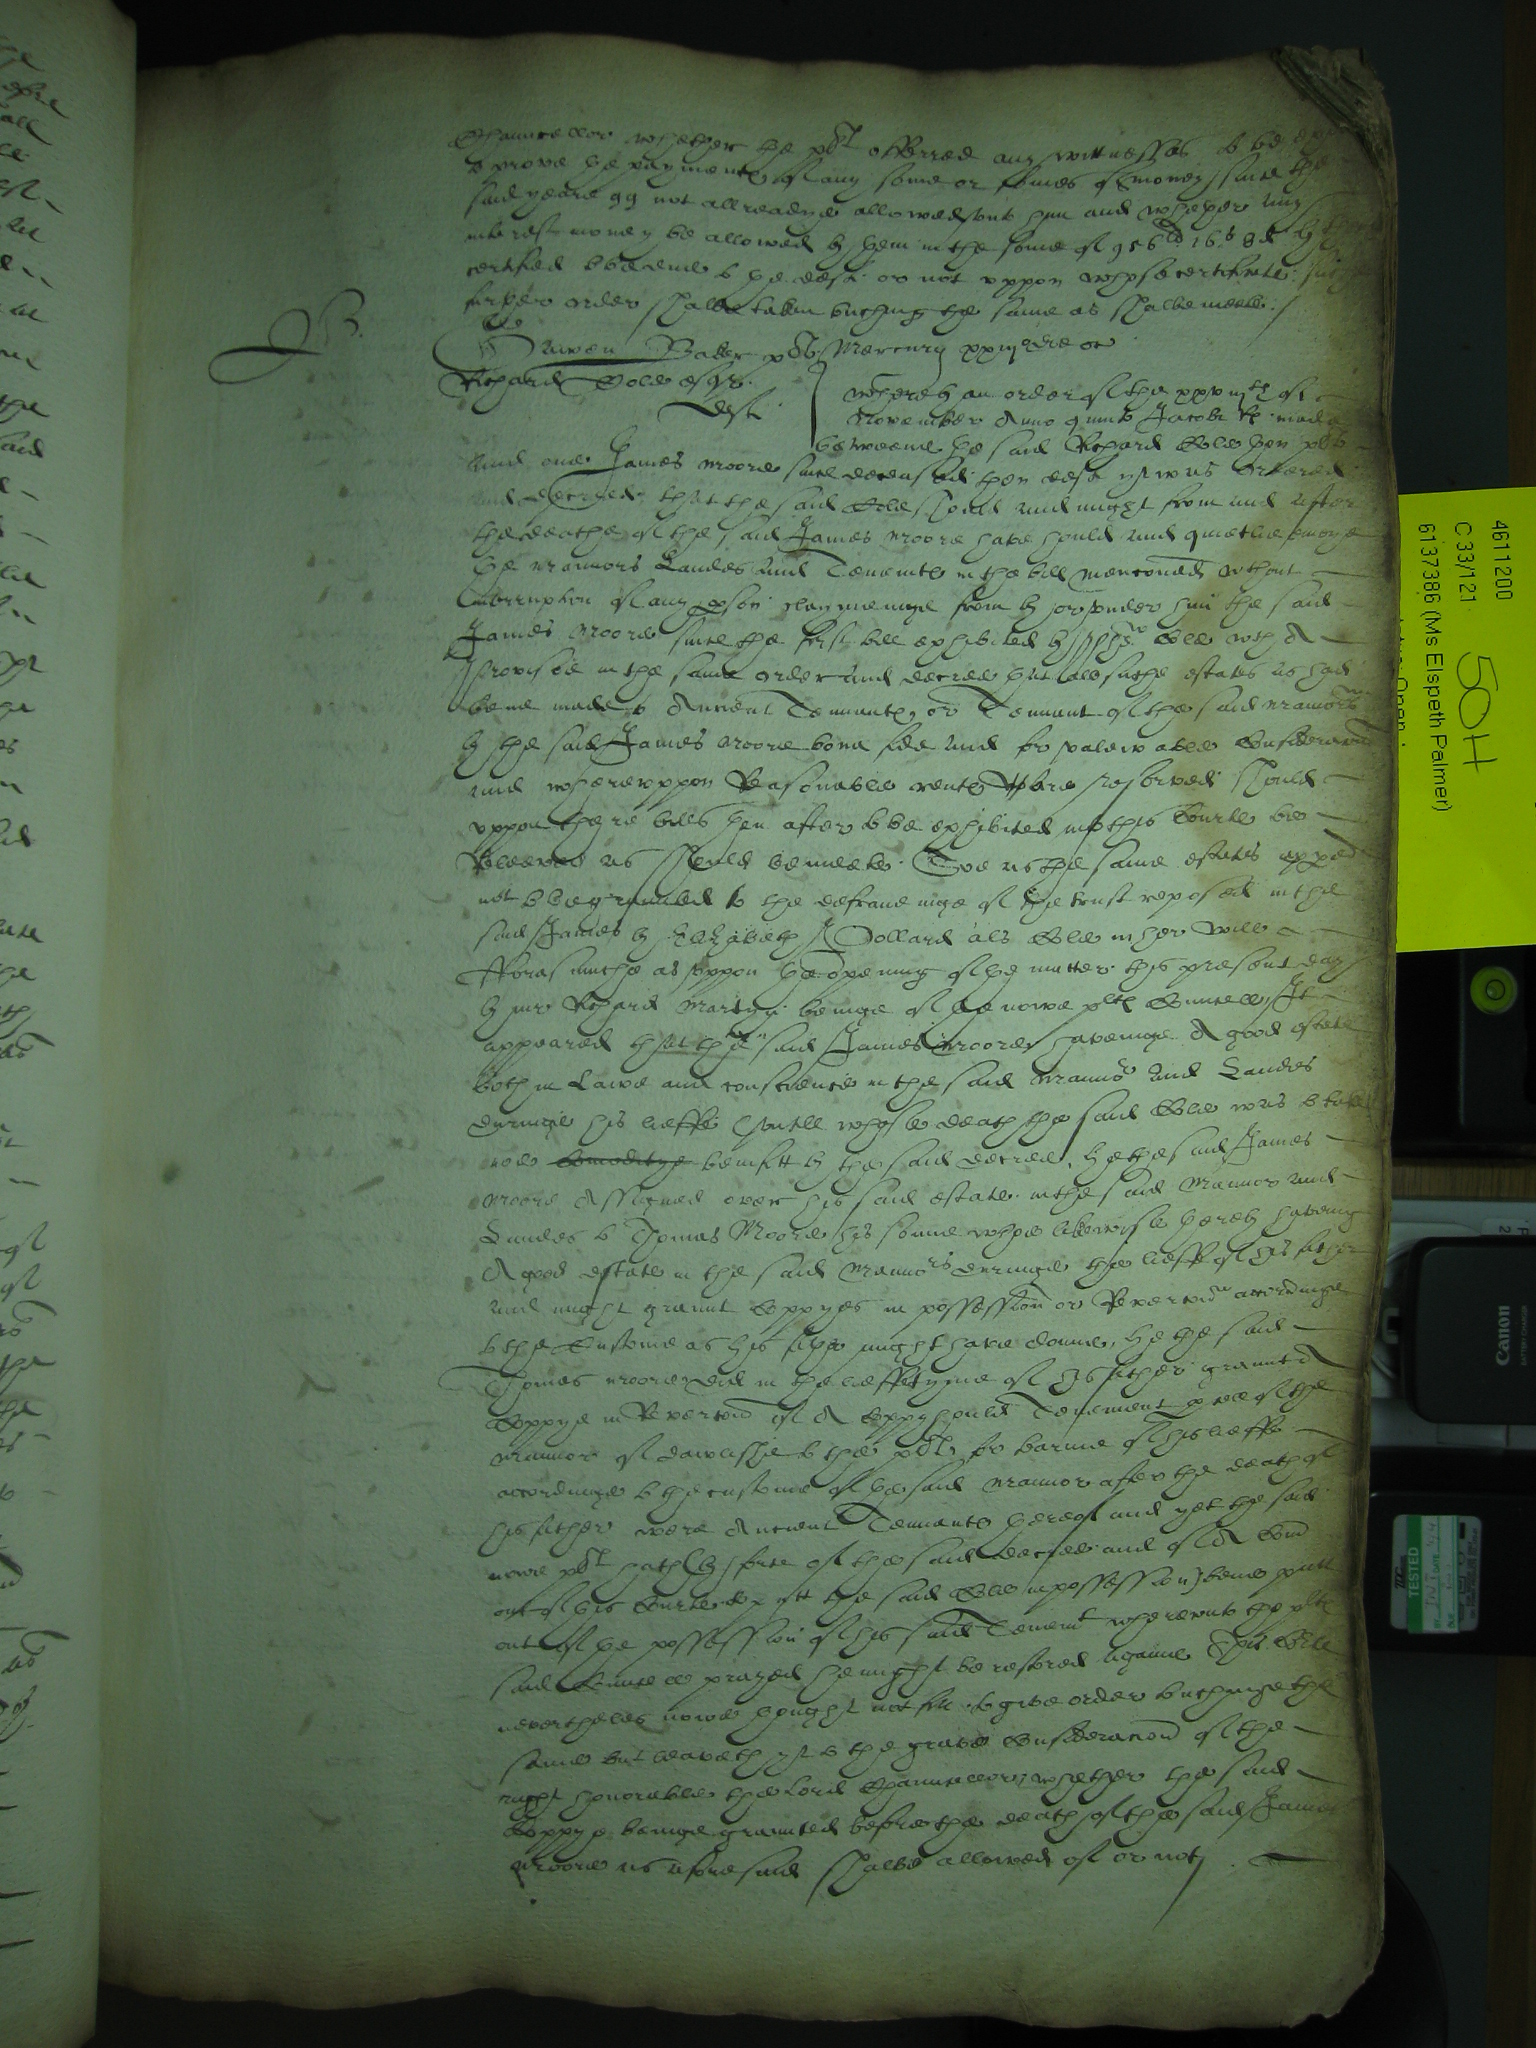 Chauncellor whether the plt offerred any wittnesses to be
to prove the paymente of any some or somes of money since the
said yeare 99 not allreadye allowed unto him and whether any
interest money be allowed by them in the some of 156li 16s 8d by them
certified to be due to the deft or not uppon whose certificate such
further order shalbe taken touching the same as shalbe meete
B.
Owen Baker plt Mercurij xxiijo die
Richard Cole esqr
deft
Where by an order of the xxviijth of
November Anno quinto Jacobi Rs made
betweene the said Richard Cole then plt
and one James Moore since deceased then deft yt was Ordered
and decreed that the said Cole should and might from and after
the deathe of the said James Moore have hould and quietlie enioye
the mannors Landes and Tenemtes in the bill mencioned without
Interruption of any pson claymeinge from by or under him the said
James Moore since the first bill exhibited by the said Cole with A
Provisoe in the same order and decree that all suche estates as had
bene made to Ancient Tennantes or Tennant of the said mannors
by the said James Moore bona fide and for valewable consideracon
and whereuppon Reasonable rentes were reserved should
uppon there bills then after to be exhibited into this Courte be
Releeved as should be meete. Soe as the same estates appeared
not to be graunted to the defraudinge of the trust reposed in the
said James by Elizabeth Pollard als Cole in her will
fforasmuche as uppon the opening of the matter this present day
by mr Richard Martyn beinge of the nowe plts Councell, It
appeared that the said James Moore haveinge A good estate
both in Lawe and conscience in the said Mannor and Landes
duringe his lieffe (untill whose death the said Cole was to take
noe comoditye benifitt by the said decree, he the said James
Moore Assigned over his said estate in the said Mannor and
Landes to Thomas Moore his sonne whoe likewise thereby having
A good estate in the said Mannors duringe the lieffe of his father
and might graunt Coppyes in possession or Revercon accordinge
to the Custome as his father might have donne, he the said
Thomas Moore did in the lieffetyme of his father graunt A
Coppye in Revercon of A Coppyhould Tenement pcell of the
mannor of dawlishe to the plt for tearme of his lieffe
accordinge to the custome of the said mannor after the death of
his father were Ancient Tennants thereof and yet the said
nowe plt hath (by force of the said decree and of A Com
out of this Courte to putt the said Cole in possession) bene putt
out of the possession of his said Tenemt whereunto the plts
said Councell prayed he might be restored againe This Court
neverthelesse nowe thought not fitt to give order touchinge the
same but leaveth yt to the grave consideracon of the
right honorable the Lord Chauncellor, whether the said
Coppye beinge graunted before the death of the said James
Moore as aforesaid shalbe allowed of or not
4611200
C 33/121
6137386 (Ms Elspeth Palmer)
50H
Canon
TESTED